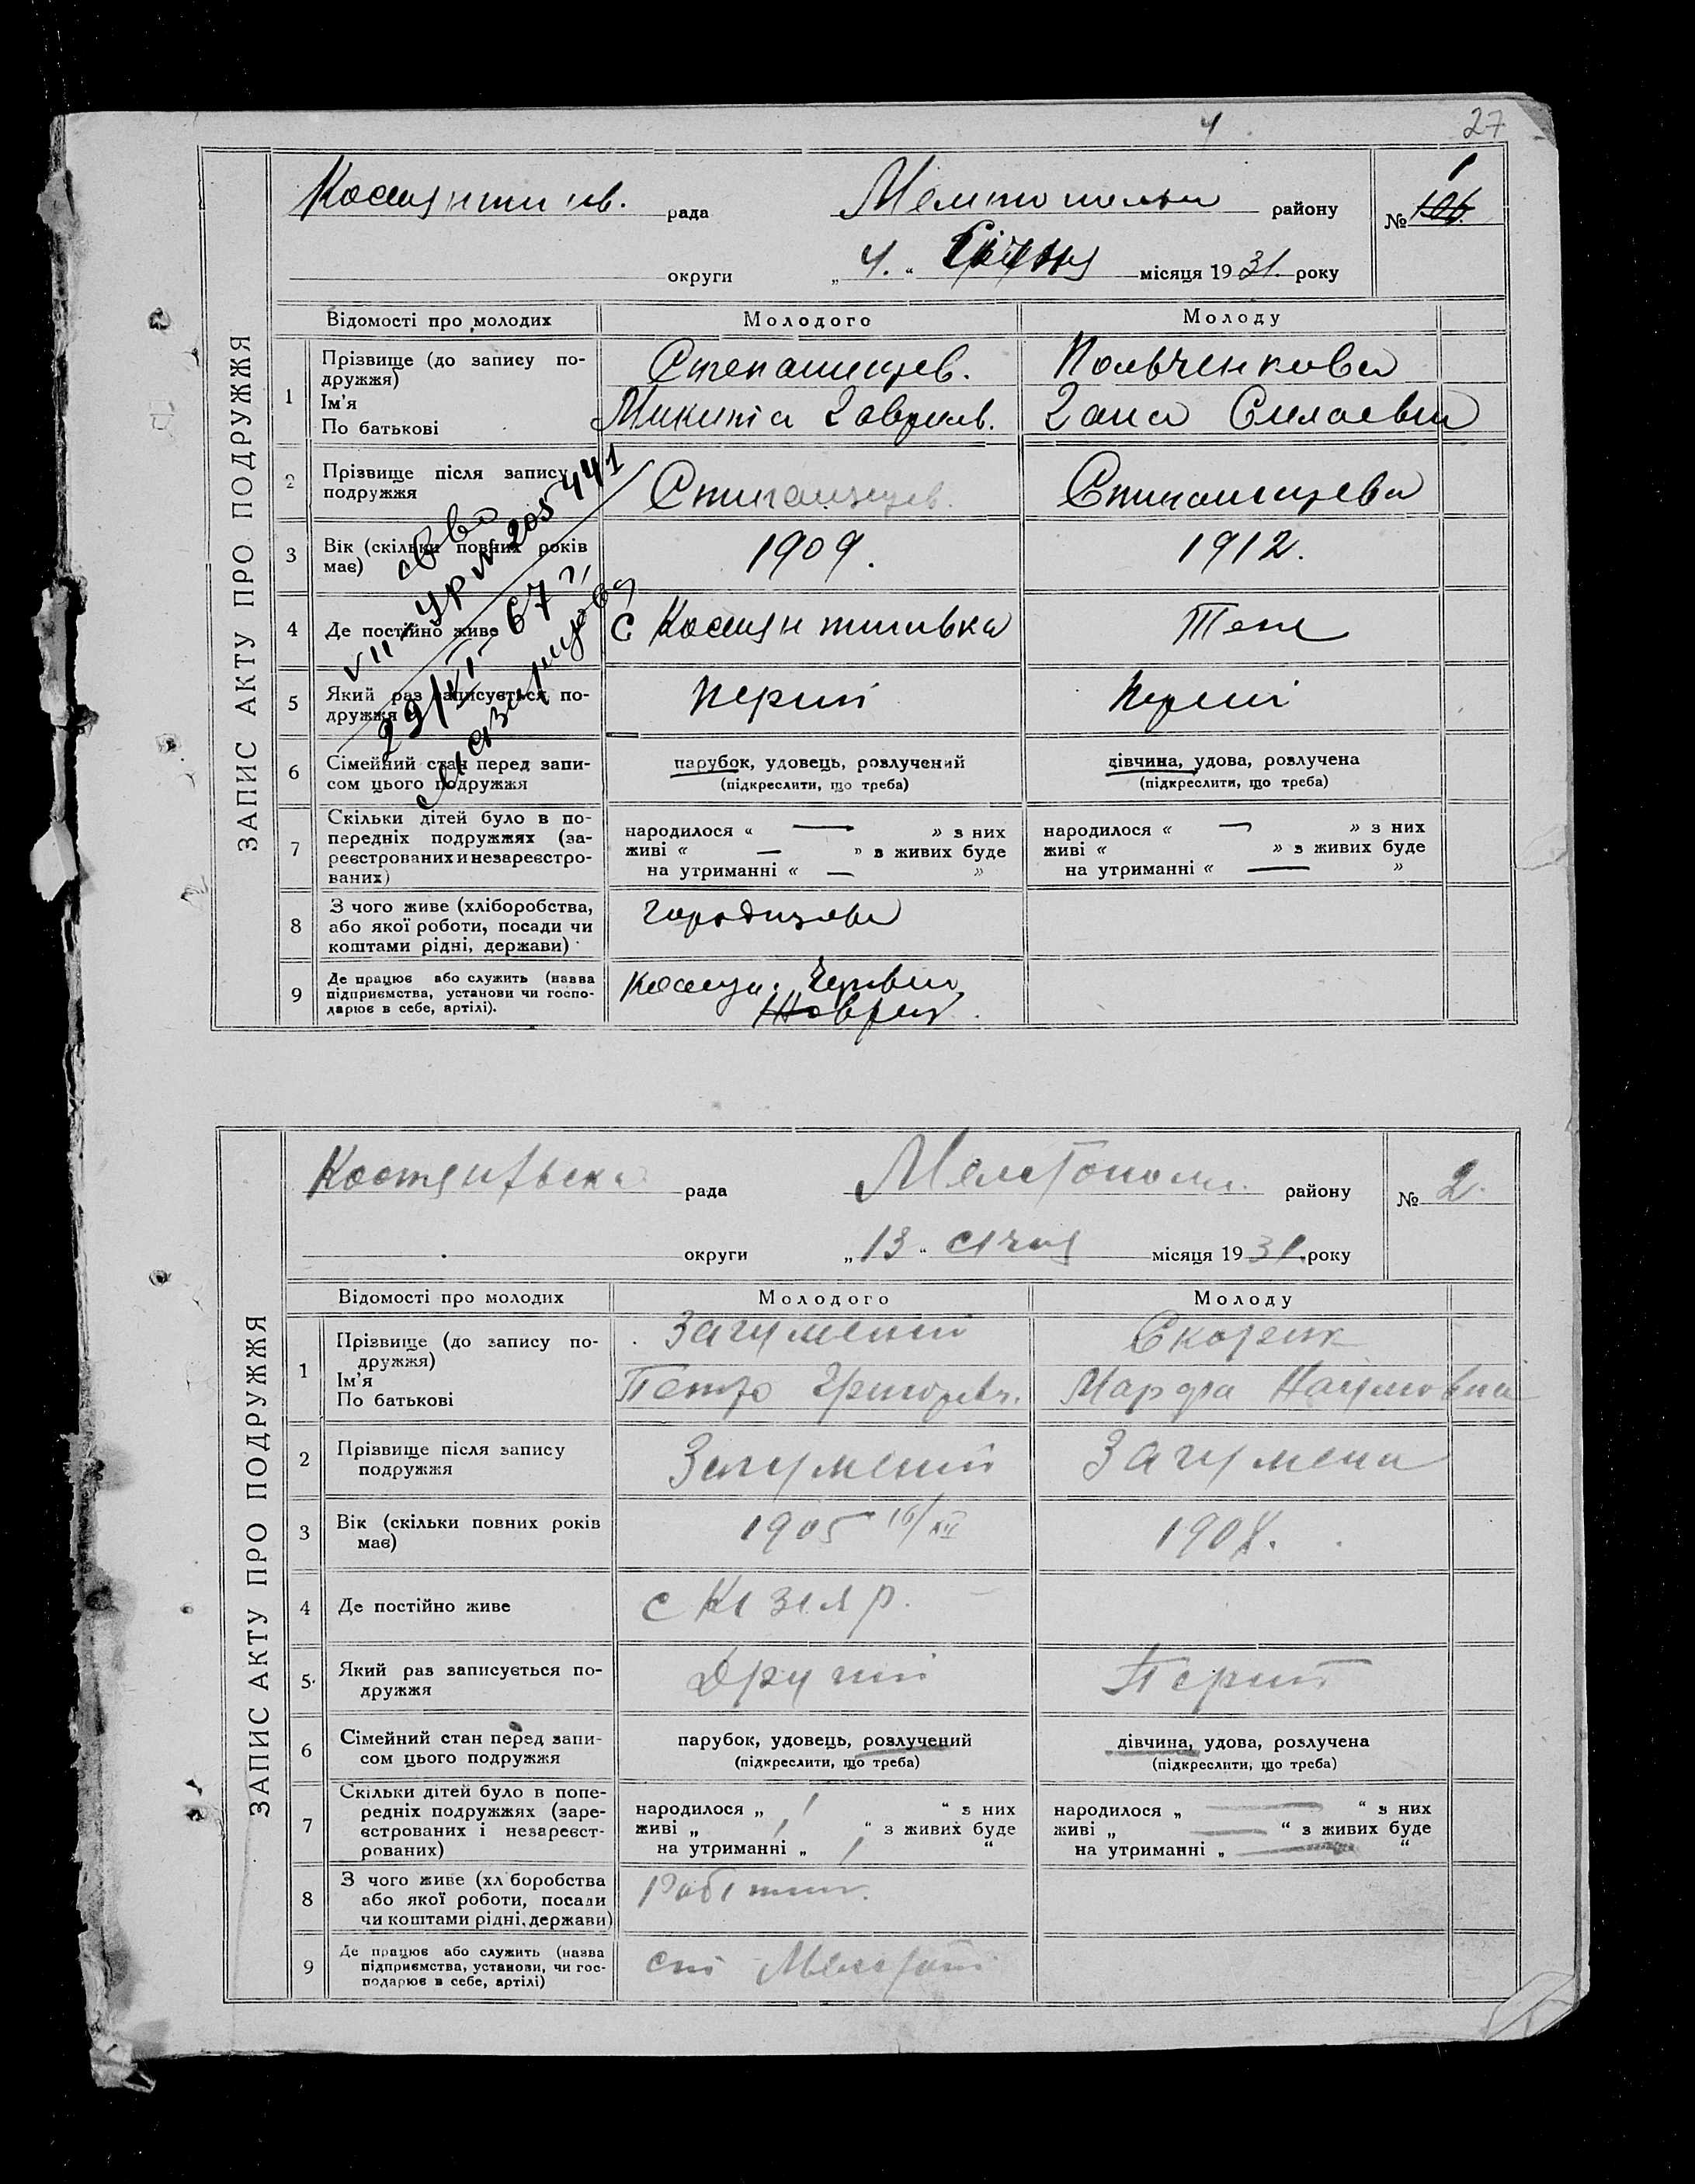 4. 27
ЗАПИС АКТУ ПРО ПОДРУЖЖЯ
рада Мелітопольськ району № 1
округи „ 4. “ Січня місяця 1931. року
Відомості про молодих Молодого Молоду
1 Прізвище (до запису по-
дружжя)
Ім'я
По батькові
Степанищев. Польченкова
Микита Гаврилв. Гана Силаевна
2 Прізвище після запису
подружжя
Степанищев. Степанищева
3 Вік (скільки повних років
має)
1909. 1912.
4 Де постійно живе
с Костянтинівка Теж
5 Який раз записується по-
дружжя
Перший Перший
6 Сімейний стан перед запи-
сом цього подружжя
парубок, удовець, розлучений
(підкреслити, що треба)
дівчина, удова, розлучена
(підкреслити, що треба)
7 Скільки дітей було в по-
передніх подружжях (за-
реєстрованих и незареєстро-
ваних)
народилося « — » з них
живі « — » з живих буде
на утриманні « — »
народилося « — » з них
живі « » з живих буде
на утриманні « — »
8 З чого живе (хліборобства,
або якої роботи, посади чи
коштами рідні, держави)
9 Де працює або служить (назва
підприємства, установи чи госпо-
дарює в себе, артілі).
VII УР № 205441
29/VI 67 г.
ЗАПИС АКТУ ПРО ПОДРУЖЖЯ
рада Мелітополь. району № 2.
округи „ 13 “ січня місяця 1931. року
Відомості про молодих Молодого Молоду
1 Прізвище (до запису по-
дружжя)
Ім'я
По батькові
Загумений Скорик
Петро Григорвч. Марфа Наумовна
2 Прізвище після запису
подружжя
Загумений Загумена
3 Вік (скільки повних років
має)
1905 16/XII 1908.
4 Де постійно живе
с Кізіяр.
5. Який раз записується по-
дружжя
Другий Перший
6 Сімейний стан перед запи-
сом цього подружжя
парубок, удовець, розлучений
(підкреслити, що треба)
дівчина, удова, розлучена
(підкреслити, що треба)
7 Скільки дітей було в попе-
редніх подружжях (заре-
єстрованих і незареєст-
рованих)
народилося „ 1 “ з них
живі „ 1 “ з живих буде
на утриманні „ 1 “
народилося „ — “ з них
живі „ — “ з живих буде
на утриманні „ — “
8 З чого живе (хл боробства
або якої роботи, посади
чи коштами рідні, держави)
Робітник.
9 Де працює або служить (назва
підприємства, установи, чи гос-
подарює в себе, артілі)